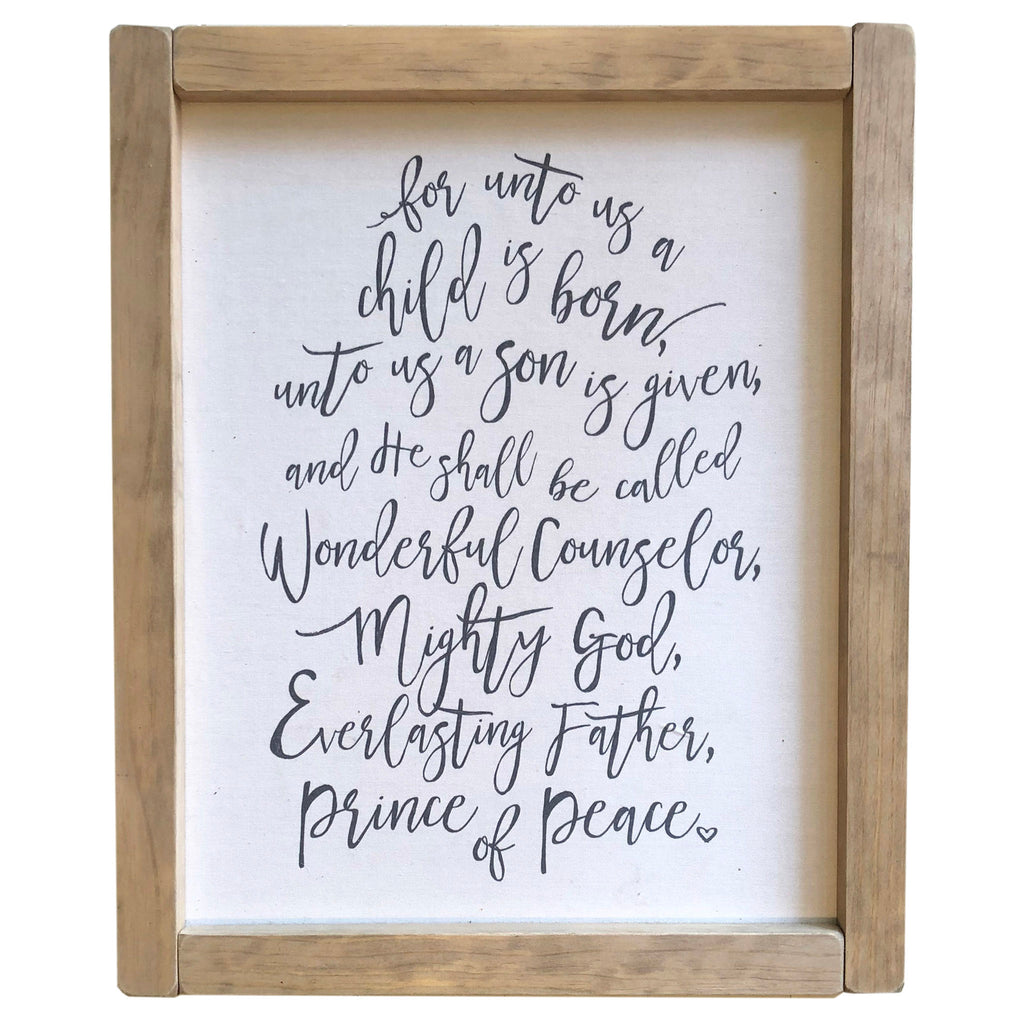 for unto us a
child is born,
unto us a son is given,
and He shall be called
Wonderful Counselor,
Mighty God,
Everlasting Father,
Prince of Peace.♡